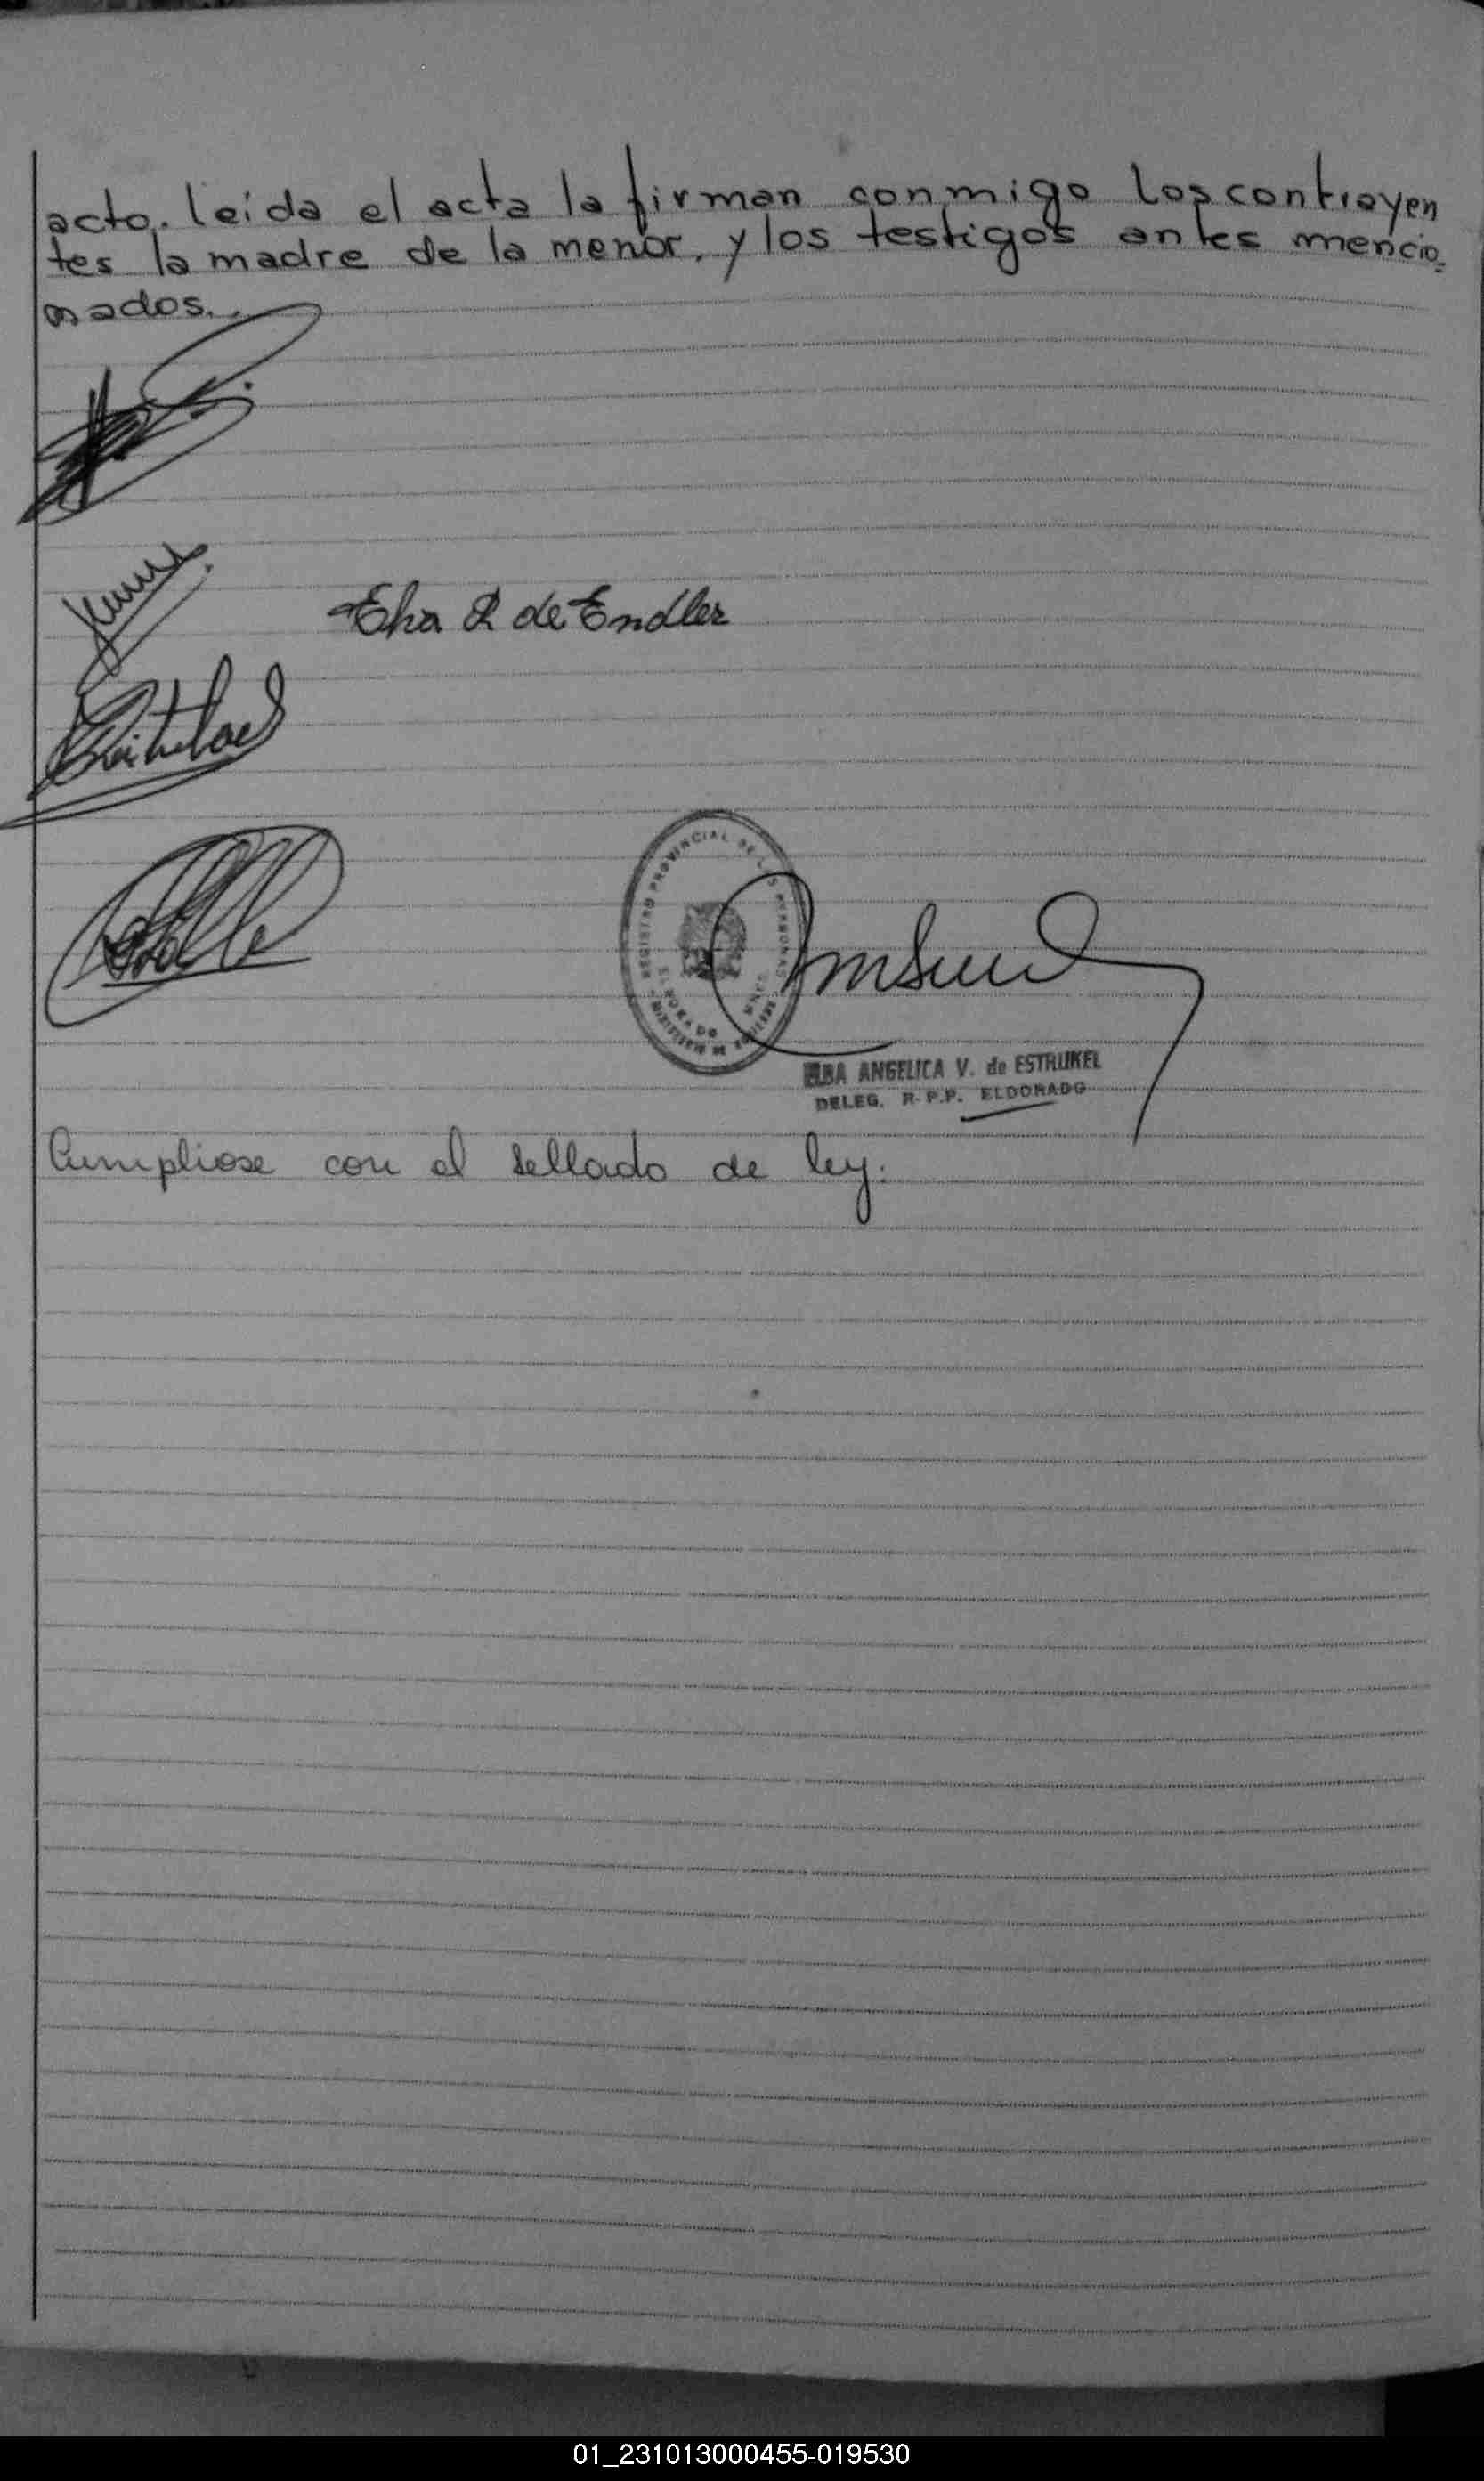 acto. leida el acta la firman conmigo los contrayen
tes la madre de la menor, y los testigos antes mencio=
nados..
de Endler
REGISTRO PROVINCIAL DE LAS PERSONAS
ELDORADO
ELBA ANGELICA V. de ESTRUKEL
DELEG. R.P.P. ELDORADO
Cumpliose con el sellado de ley.
01_231013000455-019530